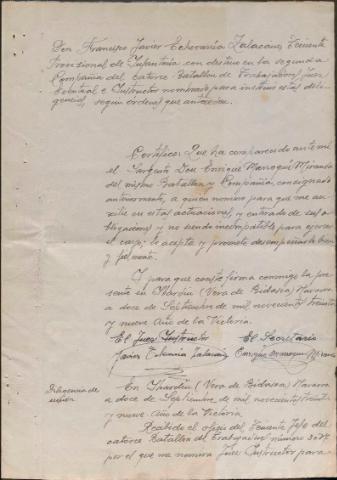 Don Francisco Javier Echevarría Zalacain, Teniente
Provisional de Infantería con destino en la segunda
Compañía del catorce Batallón de Trabajadores, Juez
Eventual e Instructor nombrado para instruir estas dili-
gencias, según ordenes que anteceden.
Certifico: Que ha comparecido ante mi
el Sargento Don Enrique Marroquí Miranda
del mismo Batallón y Compañía, consignado
anteriormente, a quien nombro para que me au-
xilie en estas actuaciones, y enterado de sus o-
bligaciones y no siendo incompatible para ejercer
el cargo, lo acepta y promete desempeñarlo bien
y fielmente.
Y para que conste firma conmigo la pre-
sente en Ibardin (Vera de Bidasoa) Navarra
a doce de Septiembre de mil novecientos treinta
y nueve Año de la Victoria.
El Juez Instructor El Secretario
Javier Zalacain Enrique Marroquí Miranda
Diligencia de En Ibardin (Vera de Bidasoa) Navarra
a doce de Septiembre de mil novecientos treinta
y nueve. Año de la Victoria
Recibido el oficio del Teniente Jefe del
catorce Batallón de Trabajadores número
por el que me nombra Juez Instructor para